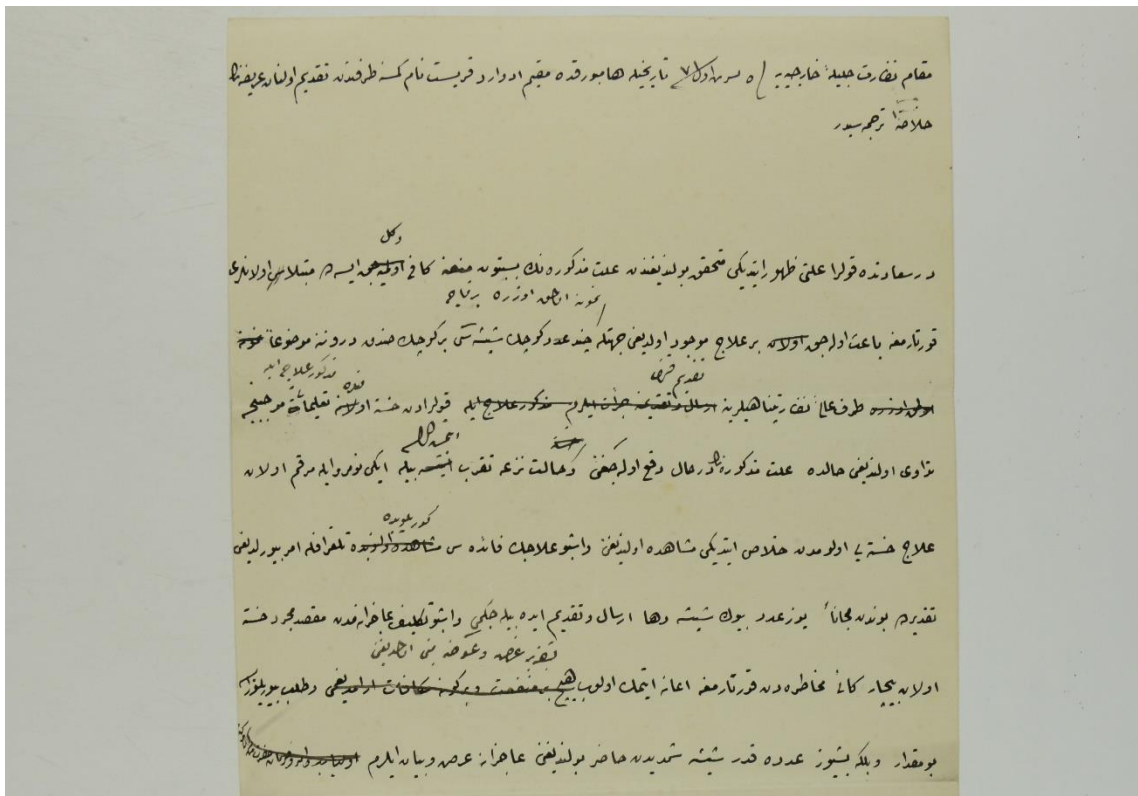 مقام نظارت جلیلهٔ خارجیه یه ٥ تشرین اول ٧١ تاریخیله هامبورقده مقیم ادوارد قریست نام کمسنه طرفندن تقدیم اولنان عریضه نك
خلاصةً ترجمه سیدر
دکل
درسعادتده قولرا علتی ظهور ایتدیکی متحقق بولندیغندن علت مذکوره نك بستون منعنه کافی اولمیه جق ایسه ده مبتلاسی اولانلری
نمونه اولمق اوزره بر پارچه
قورتارمغه باعث اوله جق اولان بر علاج موجود اولدیغی جهتله چند عدد کوچك شیشه یی بر کوچك صندق دروننه موضوعاً
تقدیم قلندی مذکور علاج ایله
اولمق اوزره طرف عالئ نظارتپناهیلرینه ارسال و تقدیمه جرأت ایلرم مذکور علاج ایله قولرادن خسته اولانه تعلیمات موجبنجه
ایتمش اولسه
تداوی اولندیغی حالده علت مذکوره نك درحال دفع اوله جغنی و حالت نزعه تقرب ایتسه بیله ایکی نومرو ایله مرقم اولان
علاج خسته یی اولومدن خلاص ایتدیکی مشاهده اولندیغنی واشبو علاجك فائده سی مشاهده اولنوبده تلغرافله امر بیورلدیغی
تقدیرده بوندن مجاناً یوز عدد بیوك شیشه دها ارسال و تقدیم ایده بیله جکمی واشبو تکلیف عاجزانه مدن مقصد مجرد خسته
غرض و عوضه مبنی اولمدیغی
اولان بیچارکانی مخاطره دن قورتارمغه اعانه ایتمك اولوب هیچ بر منفعت و بر کونه مکافات ارامدیغمی و طلب بیوریلور ایسه
بو مقدار و بلکه بشیوز عدده قدر شیشه شمدیدن حاضر بولندیغنی عاجزانه عرض و بیان ایلرم